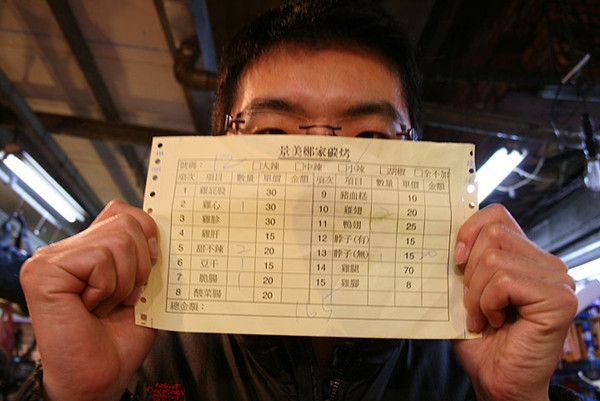 景美鄭家碳烤
號碼： 12 □大辣 □中辣 □小辣 □胡椒 □全不加
項次 項目 數量 單價 金額 項次 項目 數量 單價 金額
1 雞屁股 30 9 豬血糕 10
2 雞心 1 30 10 雞翅 2 20
3 雞胗 30 11 鴨翅 25
4 雞肝 15 12 脖子(有) 15
5 甜不辣 2 20 13 脖子(無) 15
6 豆干 15 14 雞腿 70
7 脆腸 1 20 15 雞腳 8
8 酸菜腸 20
總金額： 165